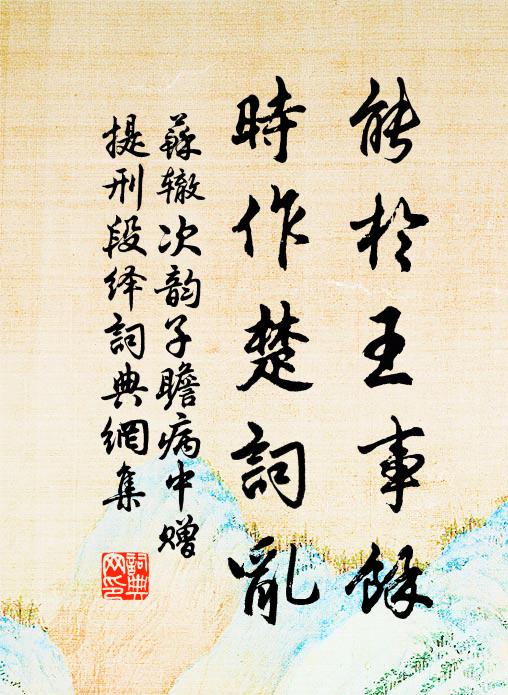 能於王事餘
時作楚詞亂
蘇辙次韵子瞻病中赠
提刑段绎詞典網集
詞典网印